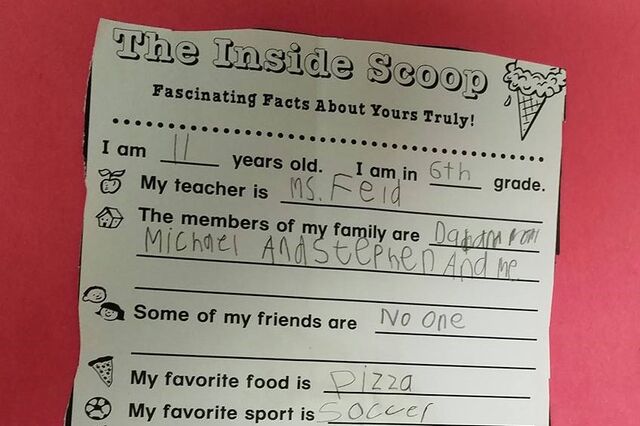 The Inside Scoop
Fascinating Facts About Yours Truly!
I am 11 years old. I am in 6th grade.
My teacher is Ms. Feid
The members of my family are
Michael And Stephen And me
Some of my friends are No one
My favorite food is pizza
My favorite sport is soccer